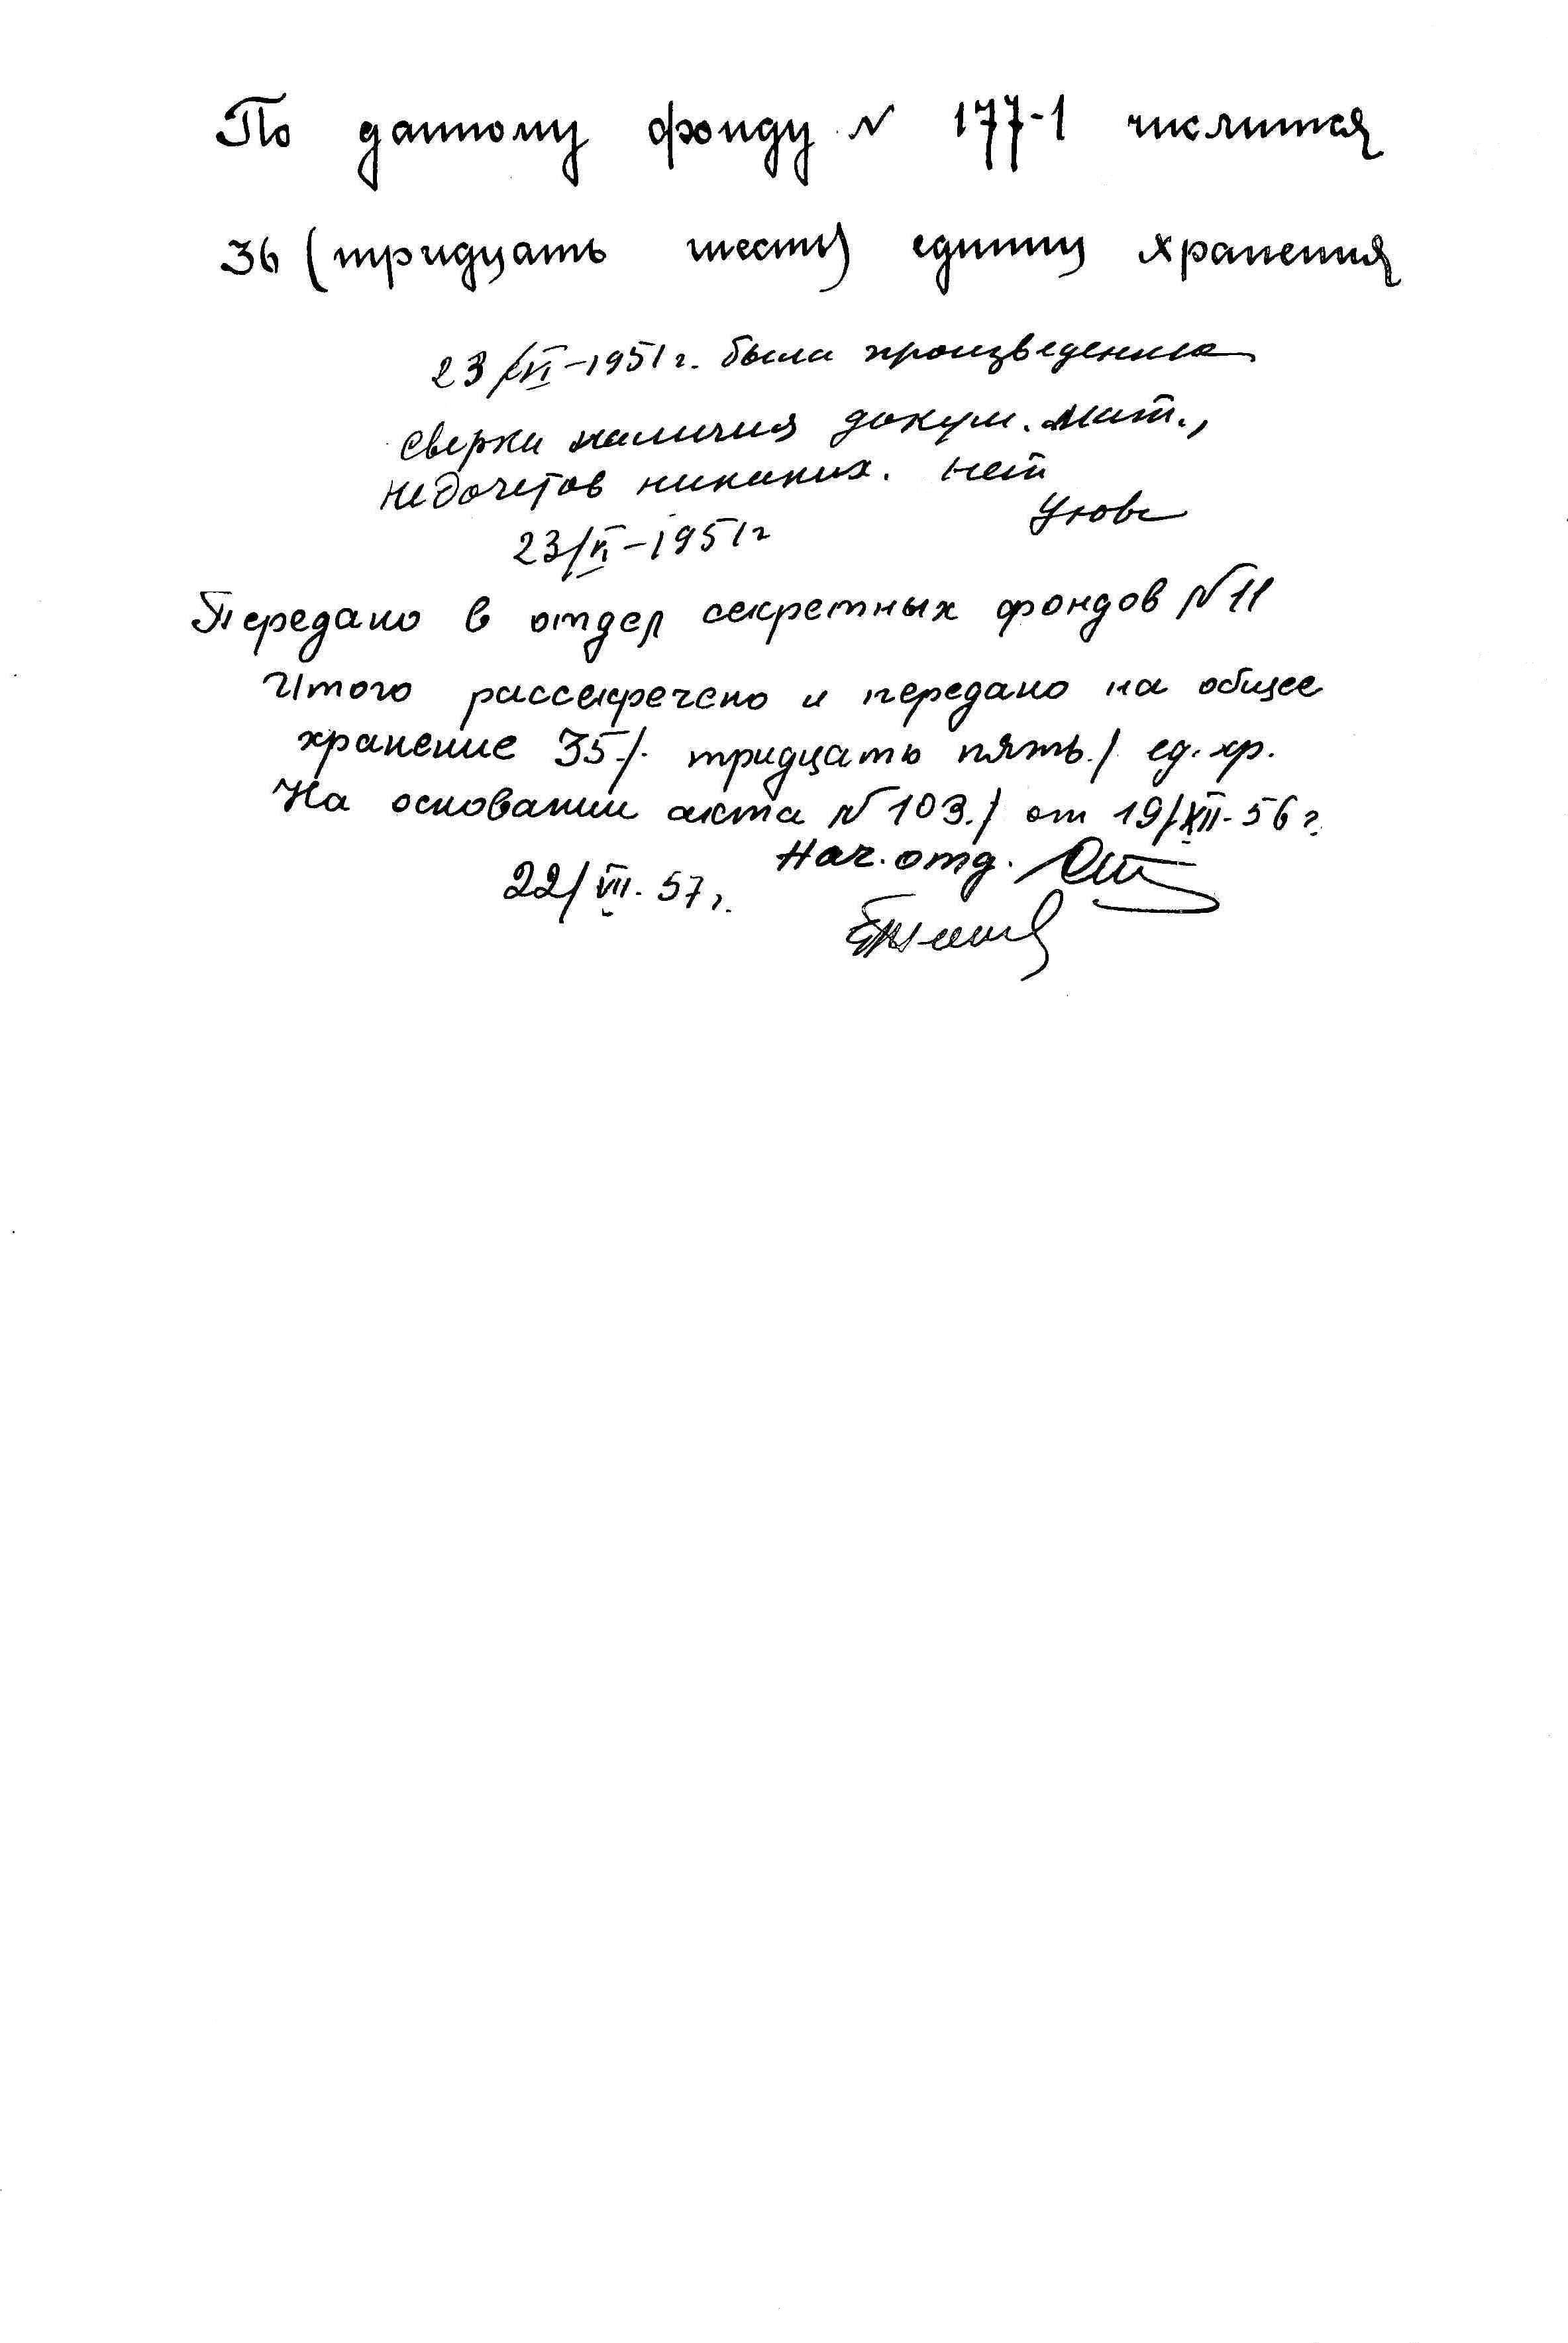 По данному фонду N 177-1 числится
36 (тридцать шесть) единиц хранения
23/VI-1951г. была произведенна
сверка наличия докум. мат.,
недочетов никаких. нет
23/VI-1951г
Передано в отдел секретных фондов N 11
Итого рассекречено и передано на общее
хранение 35/. тридцать пять./ ед. хр.
На основании акта N 103./ от 19/XII-56 г.
Нач. отд.
22/VII-57 г.